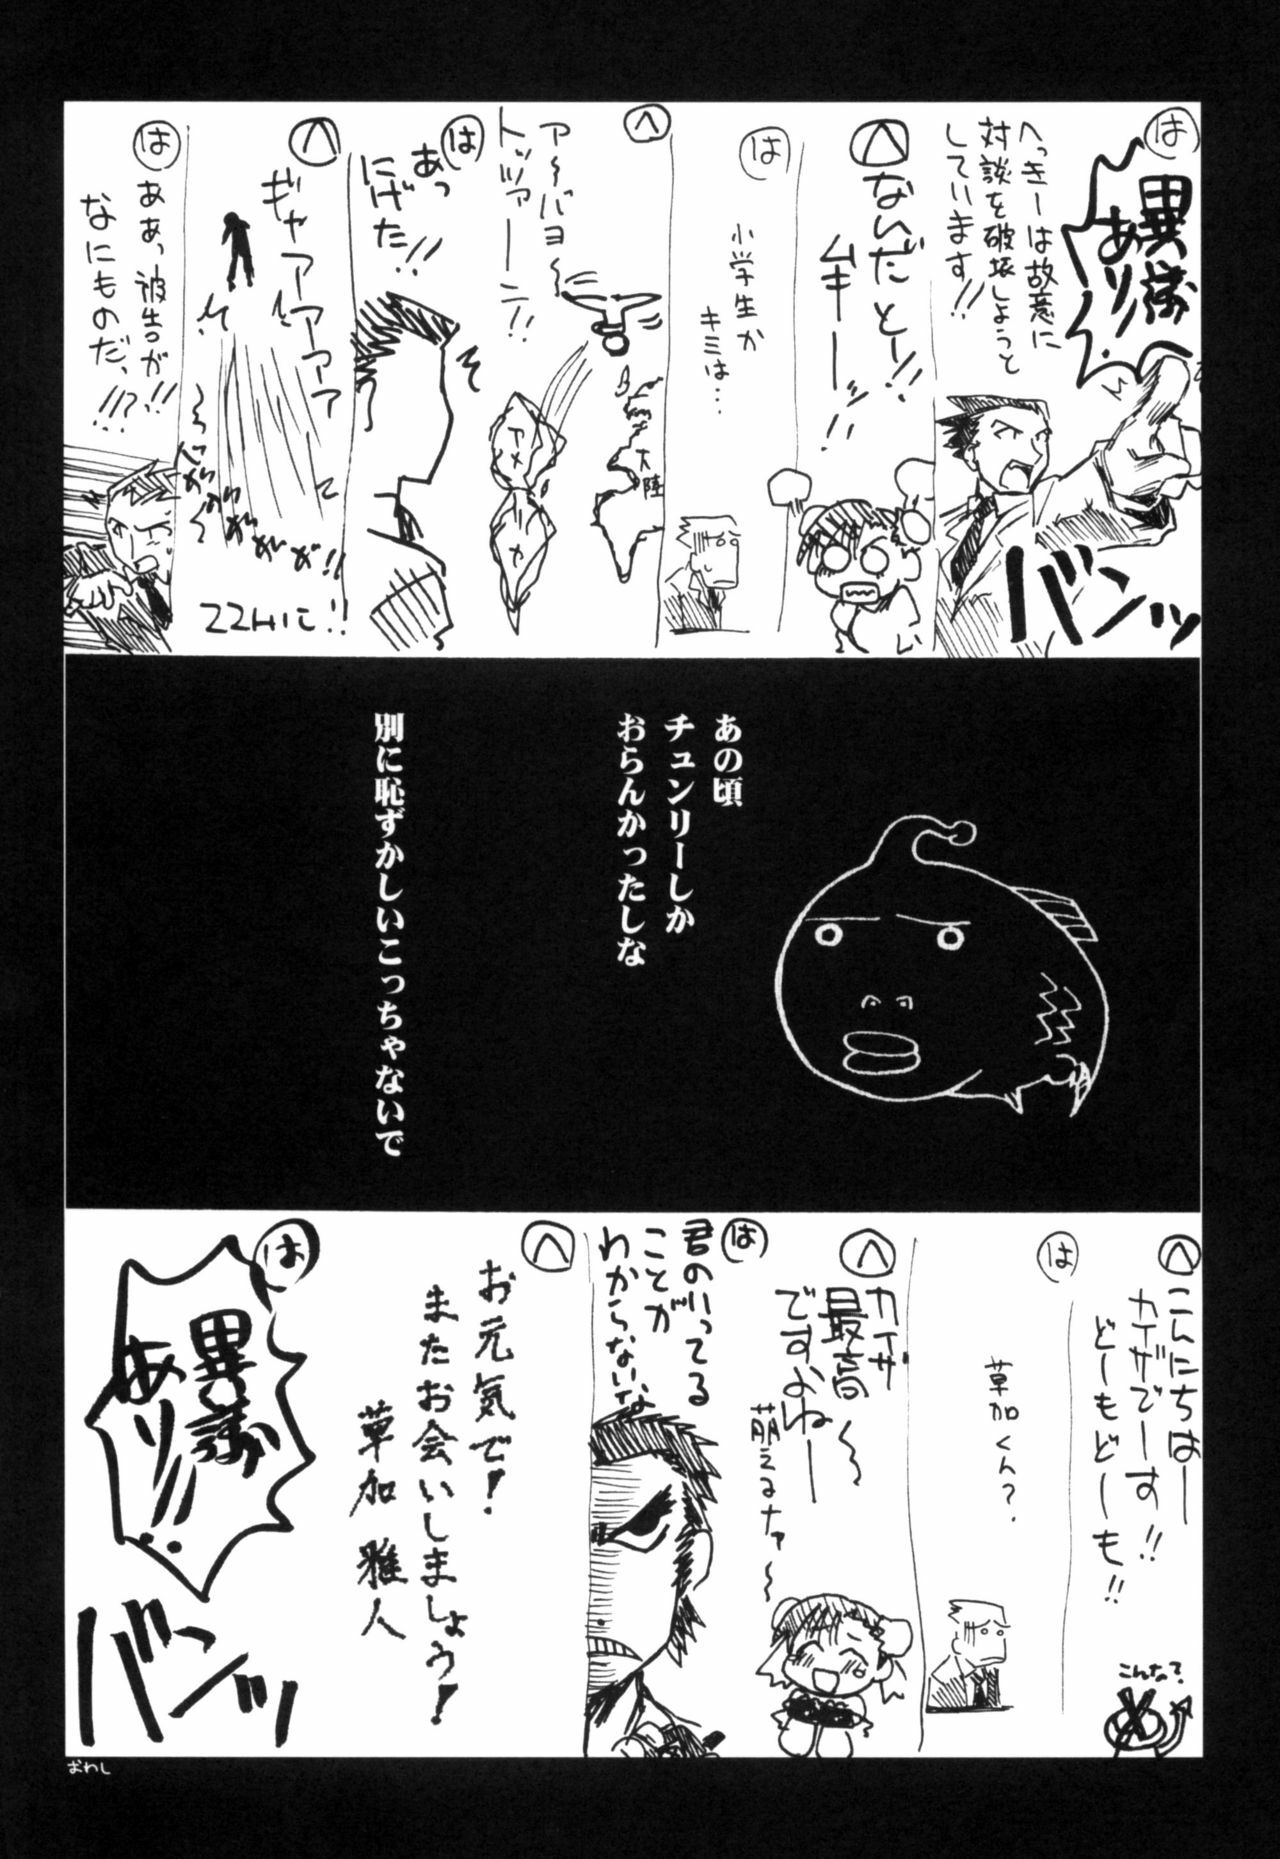 は
異議
あり!
へっきーは故意に
対談を破壊しようと
しています!!
バンッ
へ
ないだとー!!
ムキーーッ!!
は
小学生か
キミは…
へ
アーバヨ〜
トッツァーン!!
大陸
アメ
は
あっ
にげた!!
へ
ギャアアアアア
ZZHに!!
は
ああっ被告が!!
なにものだっ!!!?
あの頃
チュンリーしか
おらんかったしな
別に恥ずかしいこっちゃないで
へ
こんにちはー
カイザでーす!!
どーもどーも!!
こんなて?
は
草加くん?
へ
カイザ
最高〜
ですよねー
萌えるナァ〜
は
君のいってる
ことが
わからないな
へ
お元気で!
またお会いしましょう!
草加雅人
は
異議
あり!!
バンッ
おわし